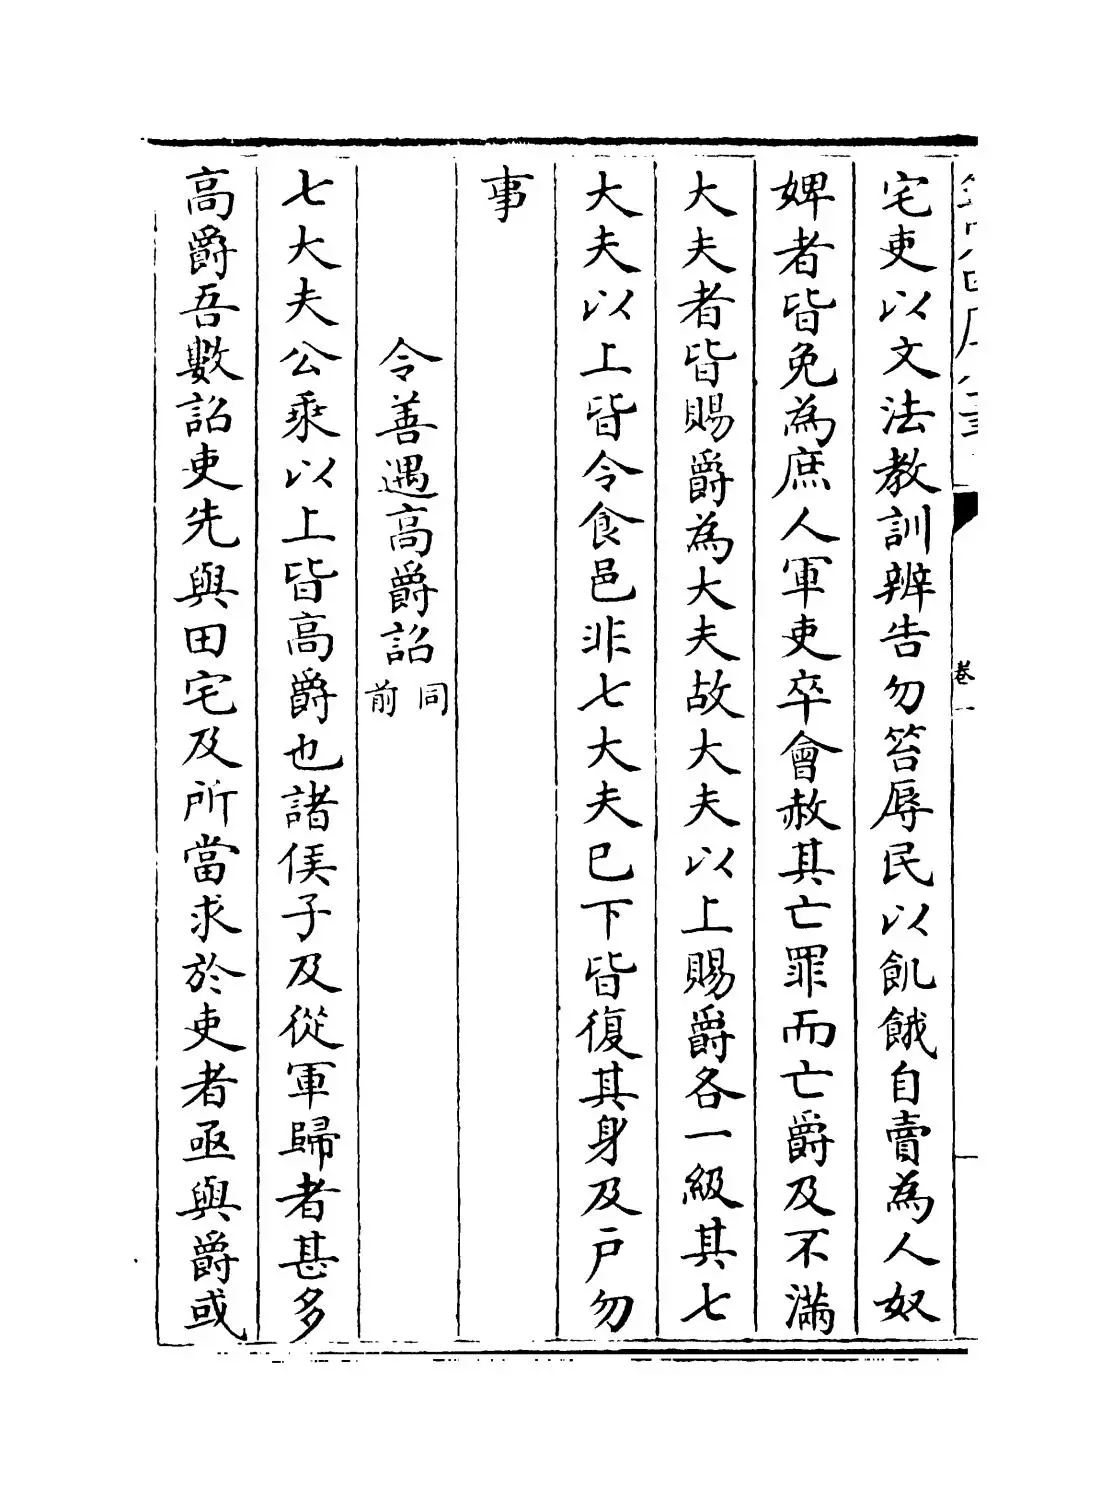 宅吏以文法教訓辨告勿笞辱民以飢餓自賣為人奴
婢者皆免為庶人軍吏卒會赦其亡罪而亡爵及不滿
大夫者皆賜爵為大夫故大夫以上賜爵各一級其七
大夫以上皆令食邑非七大夫已下皆復其身及戶勿
事
令善遇高爵詔同前
七大夫公乘以上皆高爵也諸侯子及從軍歸者甚多
高爵吾數詔吏先與田宅及所當求於吏者亟與爵或
卷一